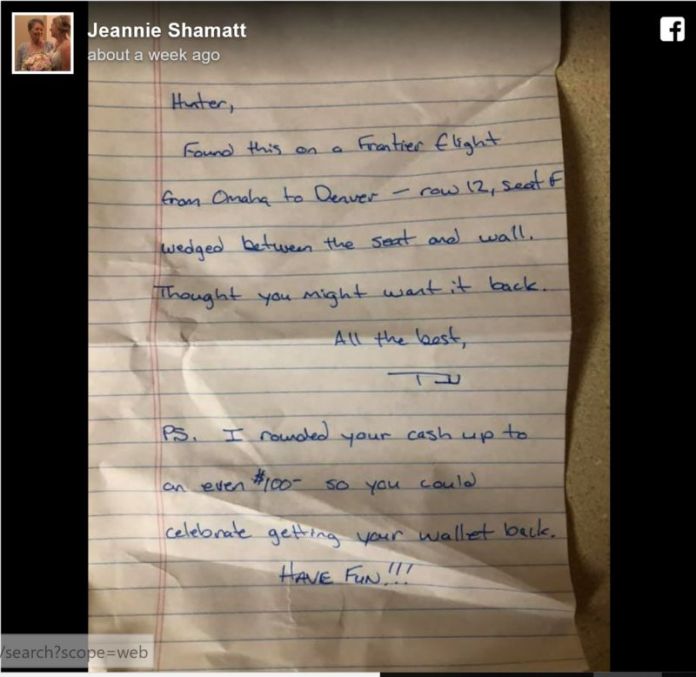 Jeannie Shamatt
about a week ago
Hunter,
Found this on a Frontier flight
from Omaha to Denver – row 12, seat F
wedged between the seat and wall.
Thought you might want it back.
All the best,
PS. I rounded your cash up to
an even $100- so you could
celebrate getting your wallet back.
HAVE FUN!!!
/search?scope=web